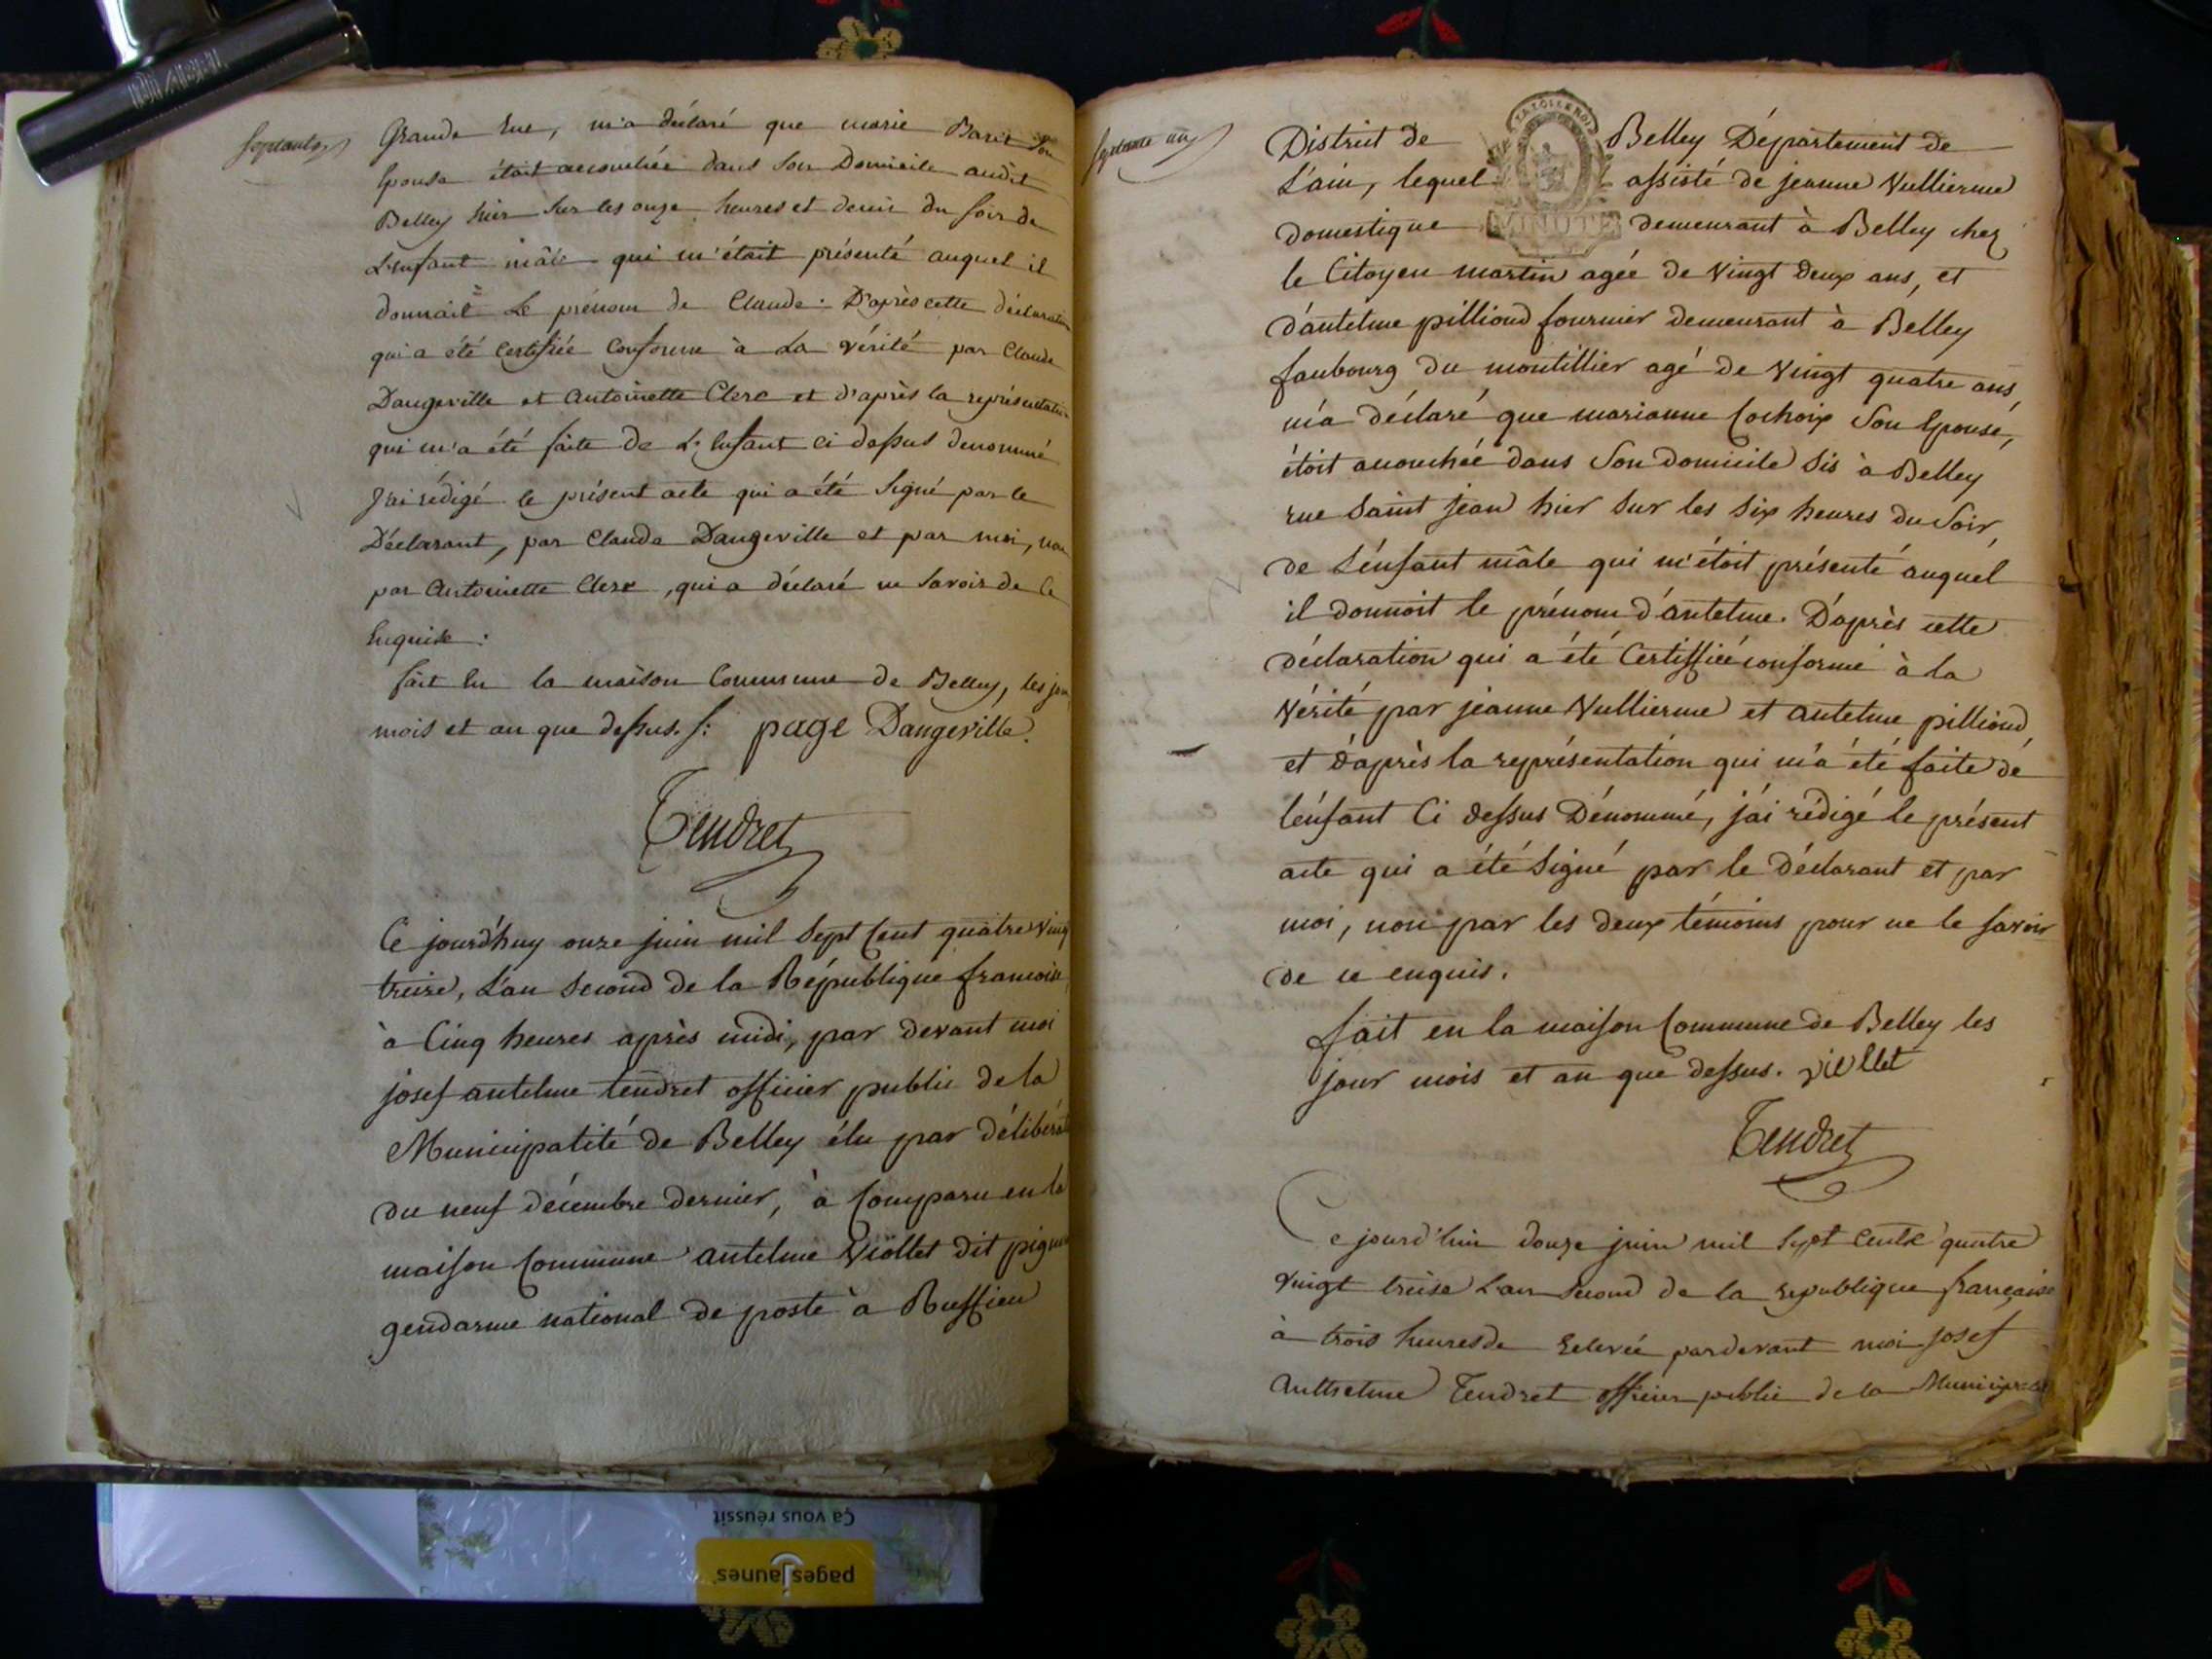 septante
Grande rue, m'a déclaré que marie Baret son
épouse était accouchée dans son Domicile audit
Belley hier sur les onze heures et demie du soir de
L'enfant mâle qui m'était présenté auquel il
donnait Le prénom de Claude. D'après cette déclaration
qui a été Certifiée Conforme à La vérité par Claude
Dangeville et Antoinette Clerc et d'après la représentation
qui m'a été faite de L'enfant ci dessus denommé
J'ai rédigé le présent acte qui a été signé par le
Déclarant, par Claude Dangeville et par moi, non
par Antoinette Clerc, qui a déclaré ne savoir de ce
Enquise.
fait en la maison Commune de Belley, les jour
mois et an que dessus. page Dangeville
Tendret
Ce jourd'huy onze juin mil sept Cent quatre vingt
treize, L'an second de la République francoise
à Cinq heures après midi, par devant moi
josef antelme tendret officier public de la
Municipalité de Belley élu par délibérat
du neuf décembre dernier, à Comparu en la
maison Commune antelme Viollet dit
gendarme national de poste à Ruffieu
septante un
District de Belley Département de
L'ain, lequel assisté de jeanne Vullierme
domestique demeurant à Belley chez
MINUTE
le Citoyen martin agée de vingt deux ans, et
d'antelme pilliond fournier demeurant à Belley
faubourg du montillier agé de vingt quatre ans
m'a déclaré que marianne Cochoix son épouse,
étoit accouchée dans son domicile sis à Belley
rue saint jean hier sur les six heures du soir,
de L'enfant mâle qui m'étoit présenté auquel
il donnoit le prénom d'antelme. D'après cette
déclaration qui a été Certiffiée conforme à la
vérité par jeanne Vullierme et antelme pilliond,
et d'après la représentation qui m'a été faite de
l'enfant Ci dessus Dénommé, j'ai rédigé le présent
acte qui a été signé par le Déclarant et par
moi, non par les deux témoins pour ne le savoir
de ce enquis.
fait en la maison Commune de Belley les
jour mois et an que dessus. viollet
Tendret
Ce jourd'hui douze juin mil sept Cents quatre
vingt treise L'an second de la republique française
à trois heures de relevée pardevant moi Josef
Anthelme Tendret officier public de la Municipalité
Ça vous réussit
pagesjaunes